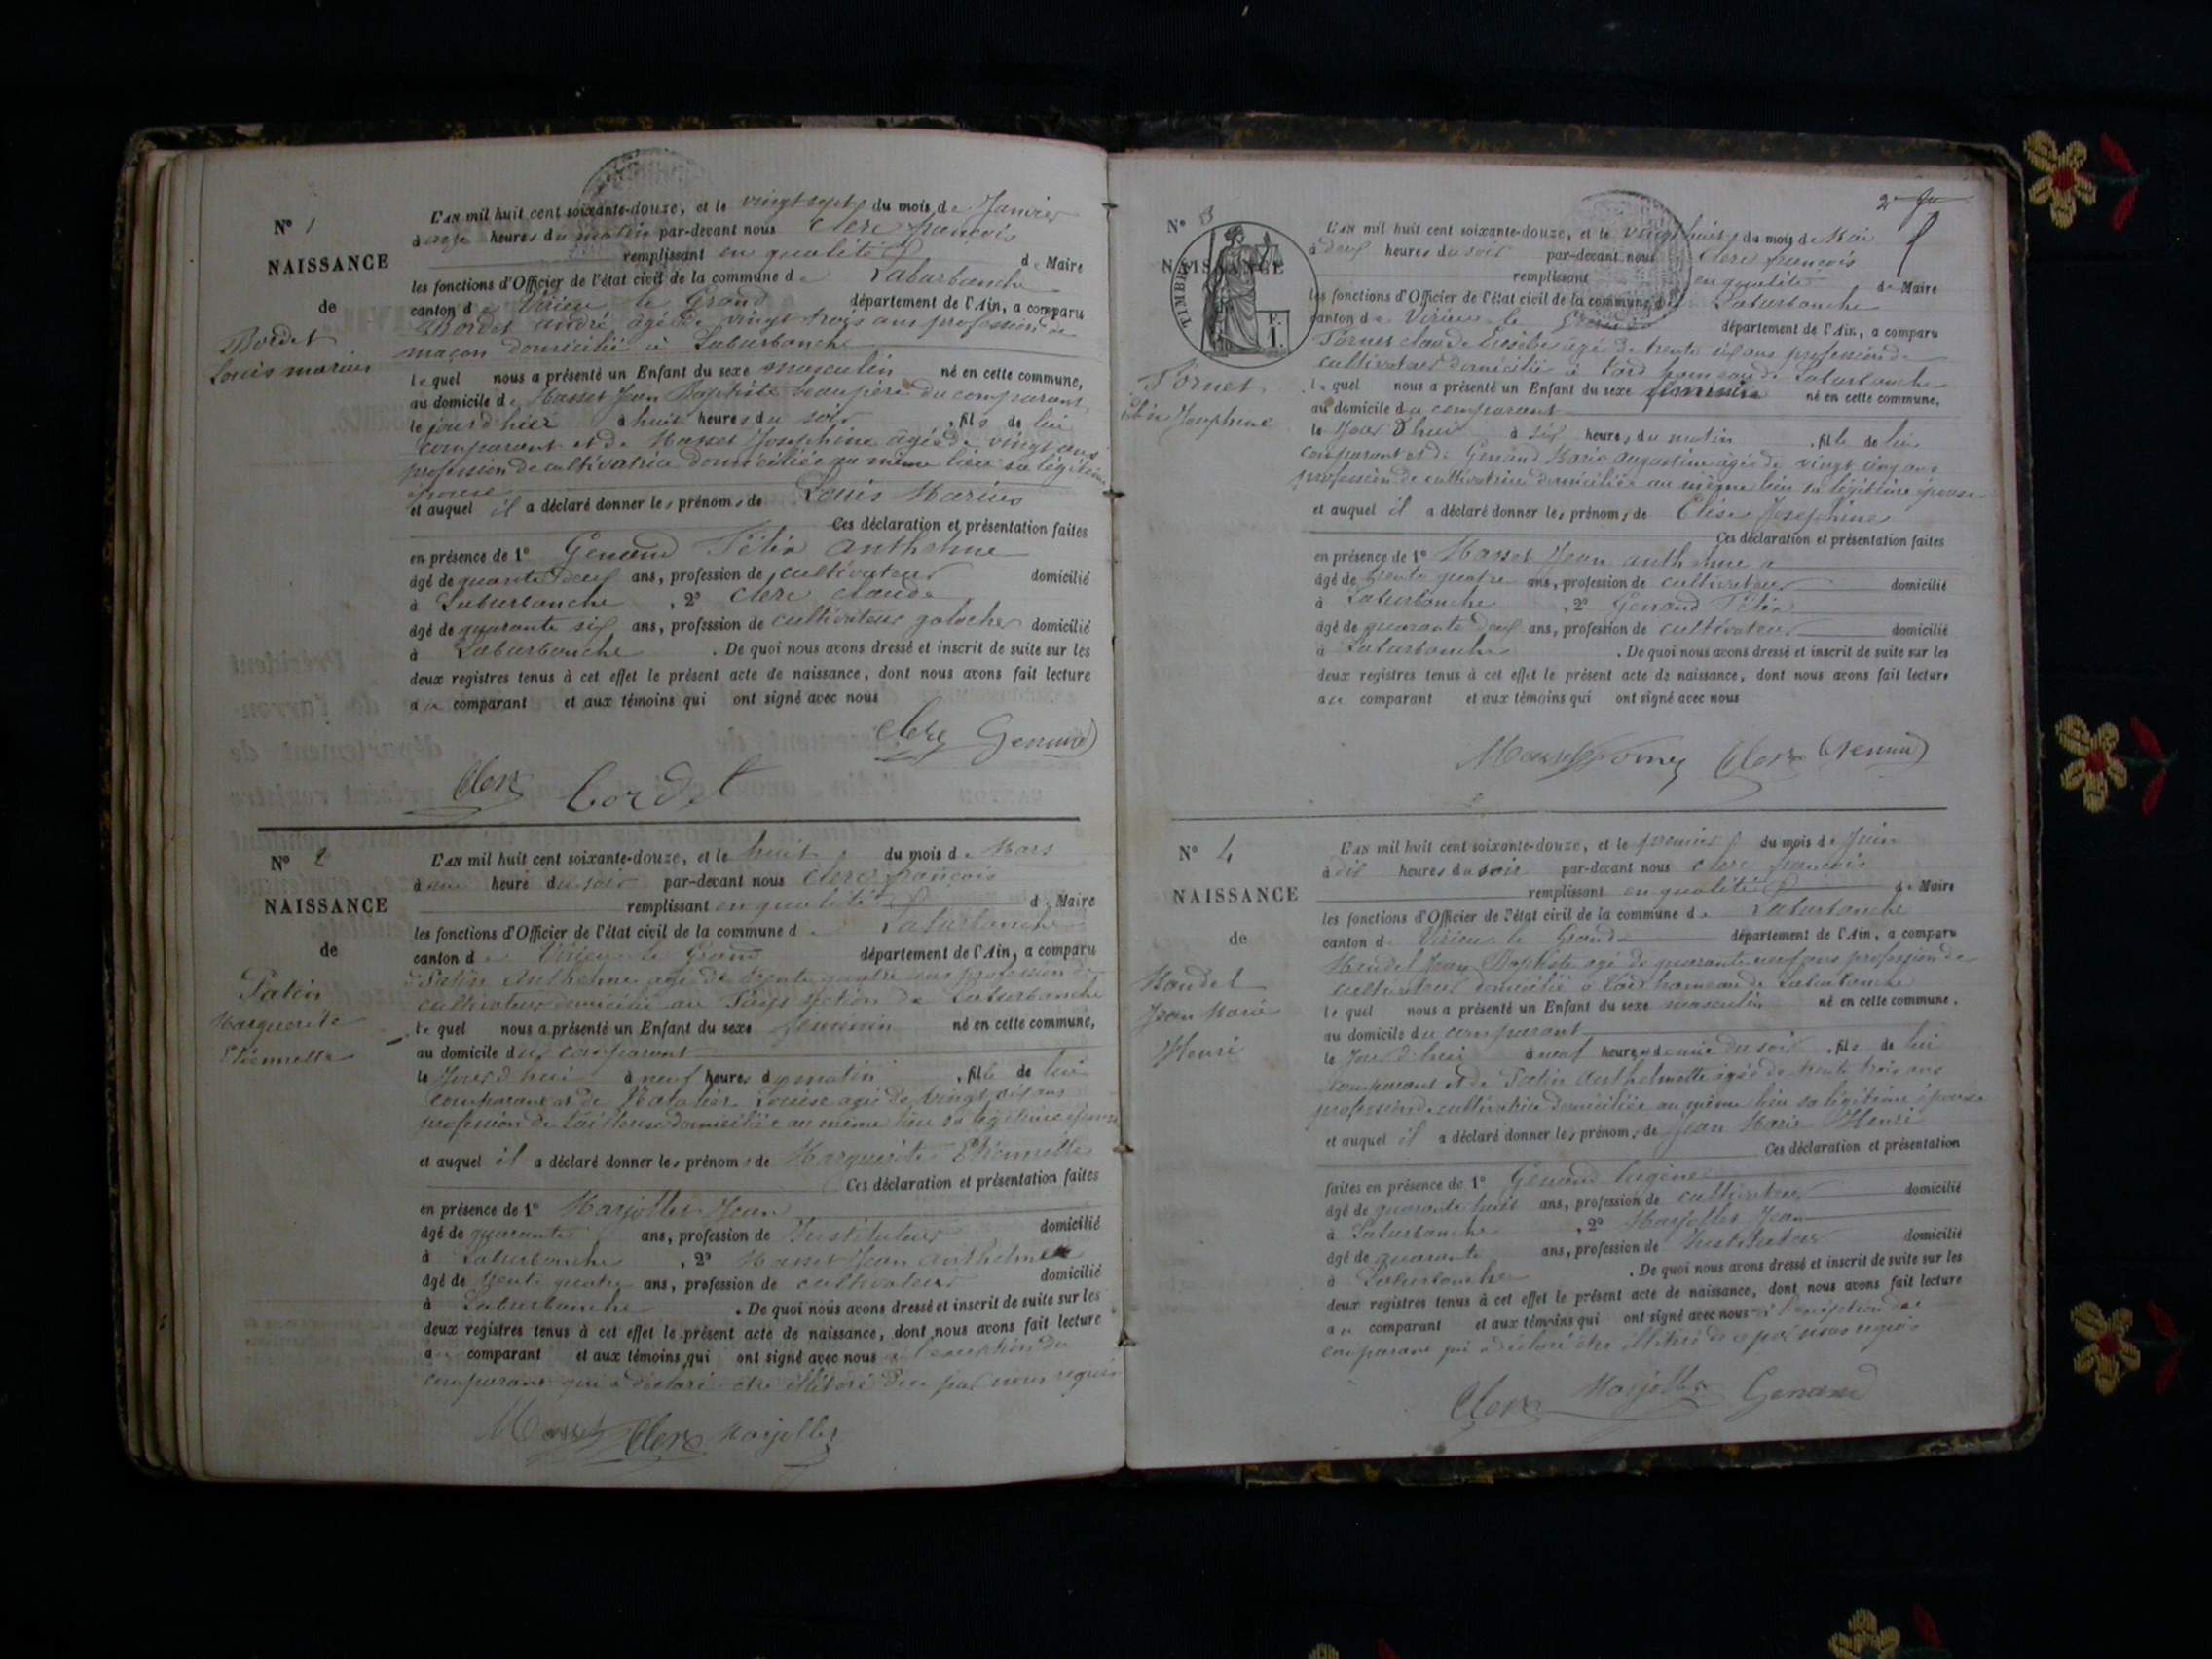 N° 1
NAISSANCE
de
Bordet
Louis marius
L'AN mil huit cent soixante-douze, et le vingt sept du mois de Janvier
à onze heures du matin par-devant nous Clerc françois
remplissant en qualité de Maire
les fonctions d'Officier de l'état civil de la commune de Laburbanche
canton de Virieu le Grand département de l'Ain, a comparu
Bordet andré âgé de vingt trois ans profession de
maçon domicilié à Laburbanche
lequel nous a présenté un Enfant du sexe masculin né en cette commune,
au domicile de Masset Jean Baptiste beaupère du comparant
le jour d'hier à huit heures du soir, fils de lui
comparant et de Masset Josephine âgée de vingt ans
profession de cultivatrice domiciliée au même lieu sa légitime
épouse
et auquel il a déclaré donner les prénoms de Louis Marius
Ces déclaration et présentation faites
en présence de 1° Genand Félix anthelme
âgé de quarante deux ans, profession de cultivateur domicilié
à Laburbanche, 2° Clerc claude
âgé de quarante six ans, profession de cultivateur galocher domicilié
à Laburbanche. De quoi nous avons dressé et inscrit de suite sur les
deux registres tenus à cet effet le présent acte de naissance, dont nous avons fait lecture
au comparant et aux témoins qui ont signé avec nous
Clerc Genand
Clerc bordet
N° 2
NAISSANCE
de
Patin
Marguerite
Etiennette
L'AN mil huit cent soixante-douze, et le huit du mois de Mars
à une heure du soir par-devant nous Clerc françois
remplissant en qualité de Maire
les fonctions d'Officier de l'état civil de la commune de Laburbanche
canton de Virieu le Grand département de l'Ain, a comparu
Patin Anthelme agé de trente quatre ans profession de
cultivateur domicilié au section de Laburbanche
lequel nous a présenté un Enfant du sexe féminin né en cette commune,
au domicile du comparant
le Jour d'hui à neuf heures du matin, fille de lui
comparant et de Louise agée de vingt ans
profession de tailleuse domiciliée au même lieu sa légitime épouse
et auquel il a déclaré donner les prénoms de Marguerite Etiennette
Ces déclaration et présentation faites
en présence de 1° Marjollet Jean
âgé de quarante ans, profession de Instituteur domicilié
à Laburbanche, 2° Masset Jean anthelme
âgé de trente quatre ans, profession de cultivateur domicilié
à Laburbanche. De quoi nous avons dressé et inscrit de suite sur les
deux registres tenus à cet effet le présent acte de naissance, dont nous avons fait lecture
au comparant et aux témoins qui ont signé avec nous à l'exception du
comparant qui a déclaré être illétéré de ce par nous requis
Masset Clerc Marjollet
2e
N° 3
NAISSANCE
TIMBRE
F.
1.
Fornet
Josephine
L'AN mil huit cent soixante-douze, et le vingt huit du mois de Mai
à deux heures du soir par-devant nous Clerc françois
remplissant en qualité de Maire
les fonctions d'Officier de l'état civil de la commune de Laburbanche
canton de Virieu le Grand département de l'Ain, a comparu
Fornet claude âgé de trente six ans profession de
cultivateur domicilié à hameau de Laburbanche
lequel nous a présenté un Enfant du sexe féminin né en cette commune,
au domicile du comparant
le Jour d'hui à six heures du matin, fille de lui
comparant et de Genand Marie augustine âgée de vingt cinq ans
profession de cultivatrice domiciliée au même lieu sa légitime épouse
et auquel il a déclaré donner les prénoms de Elise Josephine
Ces déclaration et présentation faites
en présence de 1° Masset Jean anthelme
âgé de trente quatre ans, profession de cultivateur domicilié
à Laburbanche, 2° Genand Félix
âgé de quarante deux ans, profession de cultivateur domicilié
à Laburbanche. De quoi nous avons dressé et inscrit de suite sur les
deux registres tenus à cet effet le présent acte de naissance, dont nous avons fait lecture
au comparant et aux témoins qui ont signé avec nous
Masset Fornet Clerc Genand
N° 4
NAISSANCE
de
Mondet
Jean Marie
Henri
L'AN mil huit cent soixante-douze, et le premier du mois de Juin
à dix heures du soir par-devant nous Clerc françois
remplissant en qualité de Maire
les fonctions d'Officier de l'état civil de la commune de Laburbanche
canton de Virieu le Grand département de l'Ain, a comparu
Jean Baptiste agé de quarante ans profession de
cultivateur domicilié à hameau de Laburbanche
lequel nous a présenté un Enfant du sexe masculin né en cette commune,
au domicile du comparant
le Jour d'hui à neuf heures et demie du soir, fils de lui
comparant et de Patin Anthelmette âgée de trente trois ans
profession de cultivatrice domiciliée au même lieu sa légitime épouse
et auquel il a déclaré donner les prénoms de Jean Marie Henri
Ces déclaration et présentation
faites en présence de 1° Genand Eugène
âgé de quarante huit ans, profession de cultivateur domicilié
à Laburbanche, 2° Marjollet Jean
âgé de quarante ans, profession de Instituteur domicilié
à Laburbanche. De quoi nous avons dressé et inscrit de suite sur les
deux registres tenus à cet effet le présent acte de naissance, dont nous avons fait lecture
au comparant et aux témoins qui ont signé avec nous à l'exception du
comparant qui a déclaré être illétéré de ce par nous requis
Clerc Marjollet Genand